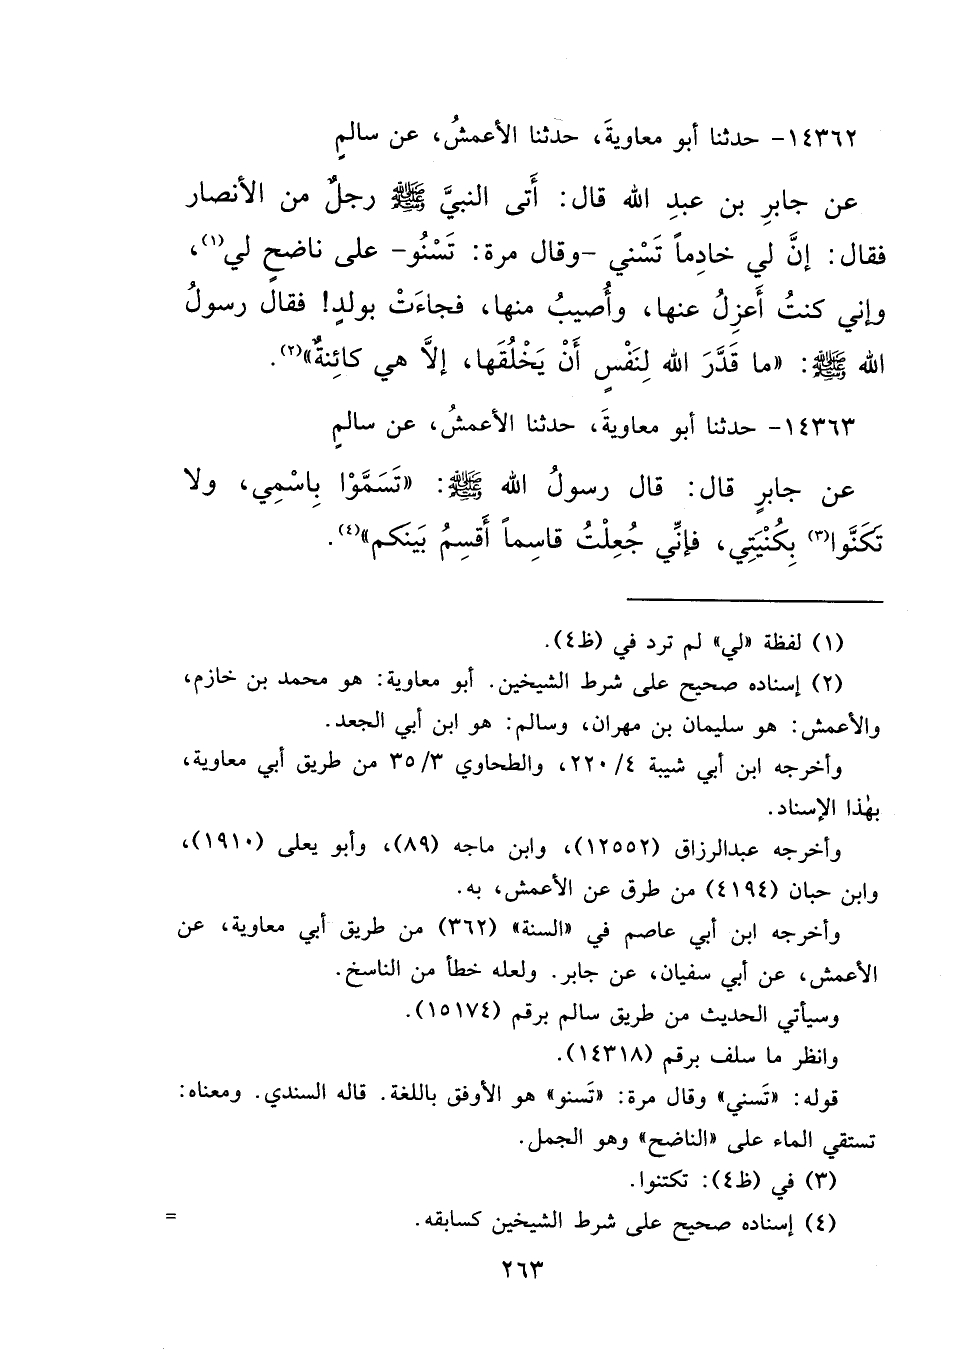 ١٤٣٦٢- حدثنا أبو معاويةَ، حدثنا الأعمشُ، عن سالمٍ
عن جابرِ بن عبدِ الله قال: أَتى النبيَّ ﷺ رجلٌ من الأنصار
فقال: إنَّ لي خادِماً تَسْني -وقال مرة: تَسْنُو- على ناضحٍ لي(١)،
وإني كنتُ أَعزِلُ عنها، وأُصيبُ منها، فجاءَتْ بولدٍ! فقال رسولُ
الله ﷺ: «ما قَدَّرَ الله لِنَفْسٍ أَنْ يَخْلُقَها، إلَّا هي كائِنةٌ»(٢).
١٤٣٦٣- حدثنا أبو معاويةَ، حدثنا الأعمشُ، عن سالمٍ
عن جابرٍ قال: قال رسولُ الله ﷺ: «تَسَمَّوْا بِاسْمِي، ولا
تَكَنَّوا(٣) بِكُنْيَتِي، فإنِّي جُعِلْتُ قاسِماً أَقسِمُ بَينكم»(٤).
(١) لفظة «لي» لم ترد في (ظ٤).
(٢) إسناده صحيح على شرط الشيخين. أبو معاوية: هو محمد بن خازم،
والأعمش: هو سليمان بن مهران، وسالم: هو ابن أبي الجعد.
وأخرجه ابن أبي شيبة ٢٢٠/٤، والطحاوي ٣٥/٣ من طريق أبي معاوية،
بهٰذا الإسناد.
وأخرجه عبدالرزاق (١٢٥٥٢)، وابن ماجه (٨٩)، وأبو يعلى (١٩١٠)،
وابن حبان (٤١٩٤) من طرق عن الأعمش، به.
وأخرجه ابن أبي عاصم في «السنة» (٣٦٢) من طريق أبي معاوية، عن
الأعمش، عن أبي سفيان، عن جابر. ولعله خطأ من الناسخ.
وسيأتي الحديث من طريق سالم برقم (١٥١٧٤).
وانظر ما سلف برقم (١٤٣١٨).
قوله: «تَسني» وقال مرة: «تَسنو» هو الأوفق باللغة. قاله السندي. ومعناه:
تستقي الماء على «الناضح» وهو الجمل.
(٣) في (ظ٤): تكتنوا.
(٤) إسناده صحيح على شرط الشيخين كسابقه. =
٢٦٣